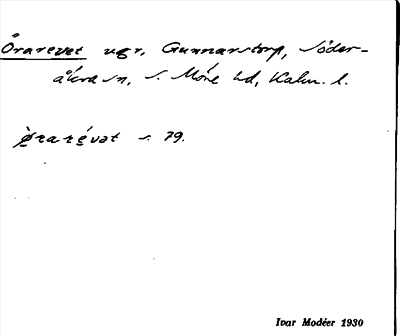 Örarevet ugr, Gunnarstorp, Söder-
åkra sn, S. Möre hd, Kalm. l.
s. 79.
Ivar Modéer 1930